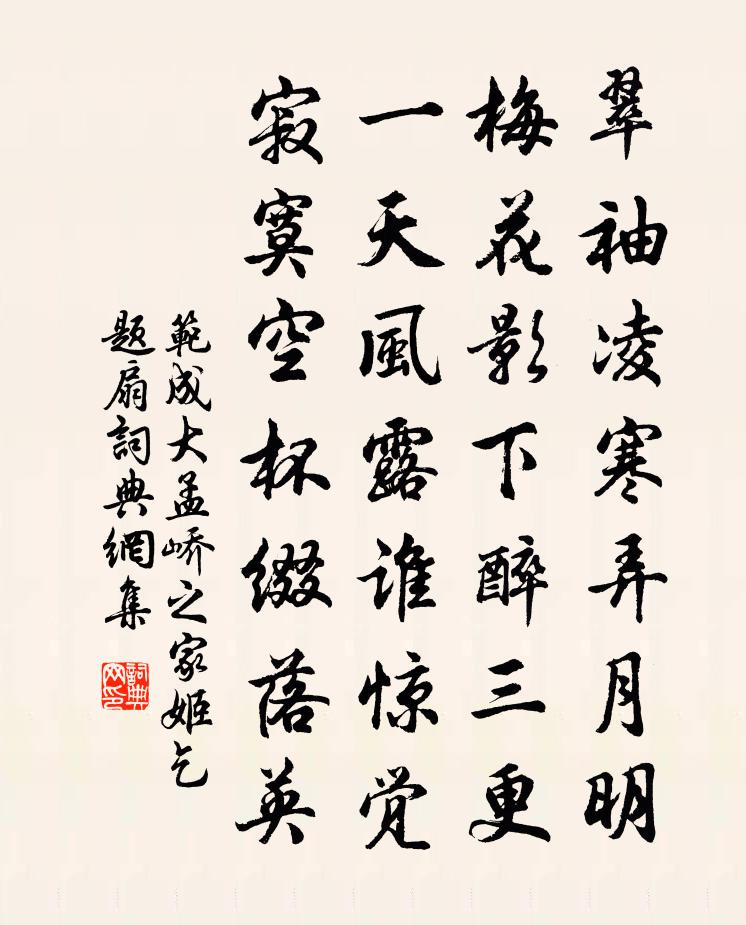 翠袖凌寒弄月明
梅花影下醉三更
一天風露谁惊觉
寂寞空杯缀落英
範成大孟峤之家姬乞
题扇詞典網集
詞典网印